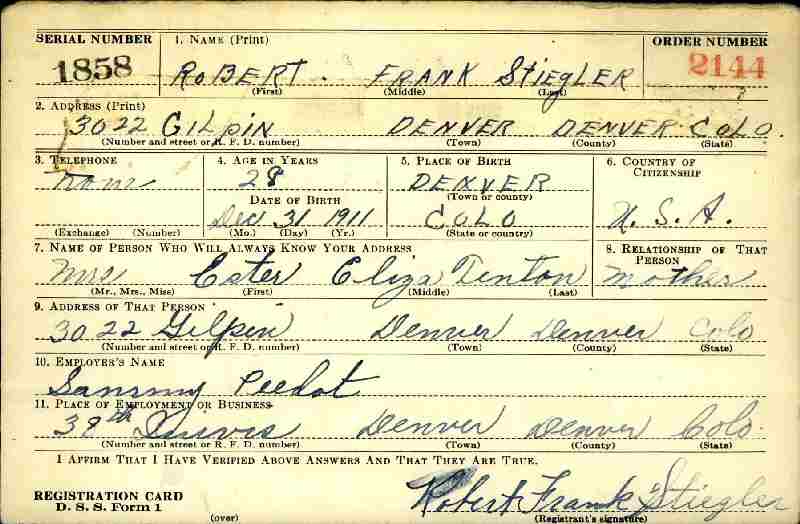 SERIAL NUMBER 1. NAME (Print) ORDER NUMBER
1858 ROBERT. FRANK STIEGLER 2144
(First) (Middle) (Last)
2. ADDRESS (Print)
3022 GILPIN DENVER DENVER COLO.
(Number and street or R. F. D. number) (Town) (County) (State)
3. TELEPHONE 4. AGE IN YEARS 5. PLACE OF BIRTH 6. COUNTRY OF CITIZENSHIP
28 DENVER
(Town or county)
DATE OF BIRTH
Dec 31 1911 COLO U.S.A.
(Exchange) (Number) (Mo.) (Day) (Yr.) (State or country)
7. NAME OF PERSON WHO WILL ALWAYS KNOW YOUR ADDRESS 8. RELATIONSHIP OF THAT PERSON
Mrs Ester Eliza Tinton Mother
(Mr., Mrs., Miss) (First) (Middle) (Last)
9. ADDRESS OF THAT PERSON
3022 Gilpin Denver Denver Colo
(Number and street or R. F. D. number) (Town) (County) (State)
10. EMPLOYER'S NAME
11. PLACE OF EMPLOYMENT OR BUSINESS
38th Denver Denver Colo.
(Number and street or R. F. D. number) (Town) (County) (State)
I AFFIRM THAT I HAVE VERIFIED ABOVE ANSWERS AND THAT THEY ARE TRUE.
Robert Frank Stiegler
REGISTRATION CARD
D. S. S. Form 1 (over) (Registrant's signature)